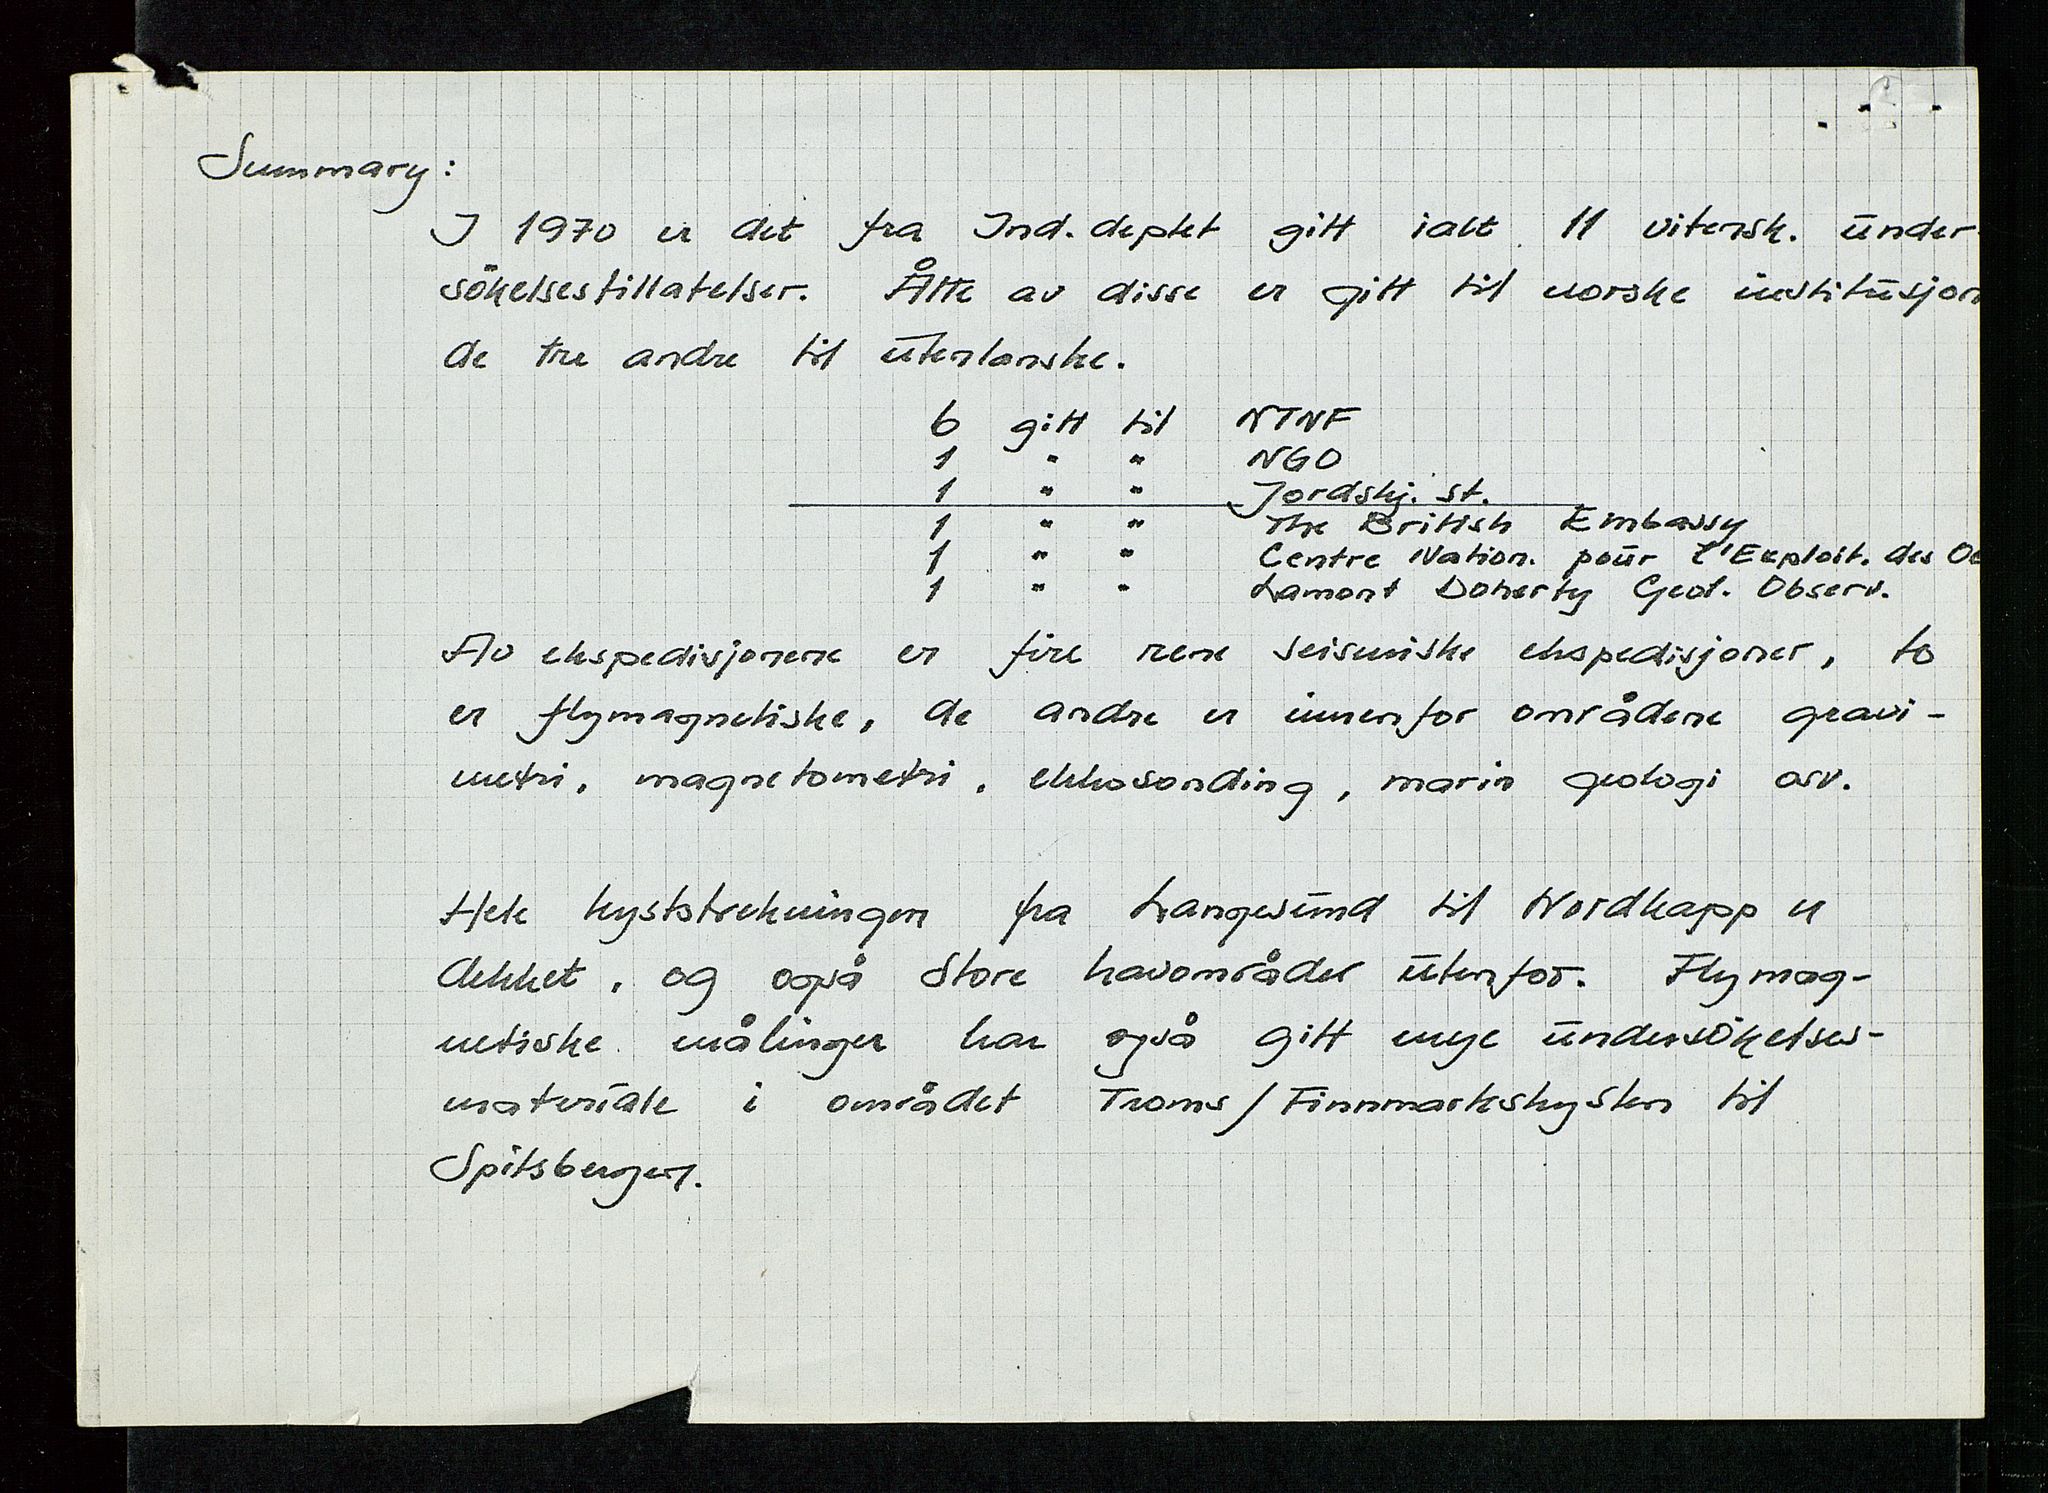 Summary:
I 1970 er det fra Ind.deptet gitt ialt 11 vitensk. under-
sökelsestillatelser. Åtte av disse er gitt til norske institusjon
de tre andre til utenlanske.
6 gitt til NTNF
1 " " NGO
1 " " Jordskj. st.
1 " " The British Embassy
1 " " Centre Nation. pour l'Exploit. des Oc
1 " " Lamont Doherty Geol. Observ.
Av ekspedisjonene er fire rene seismiske ekspedisjoner, to
er flymagnetiske, de andre er innenfor områdene gravi-
metri, magnetometri, ekkosonding, marin geologi osv.
Hele kyststrekningen fra Langesund til Nordkapp er
dekket, og også store havområder utenfor. Flymag-
netiske målinger har også gitt mye undersökelses-
materiale i området Troms/Finnmarkskysten til
Spitsbergen.